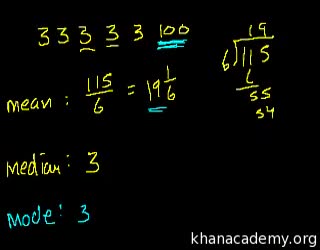 3 3 3 3 3 100
19
6)115
6
55
54
mean: 115/6 = 19 1/6
median: 3
mode: 3
khanacademy.org